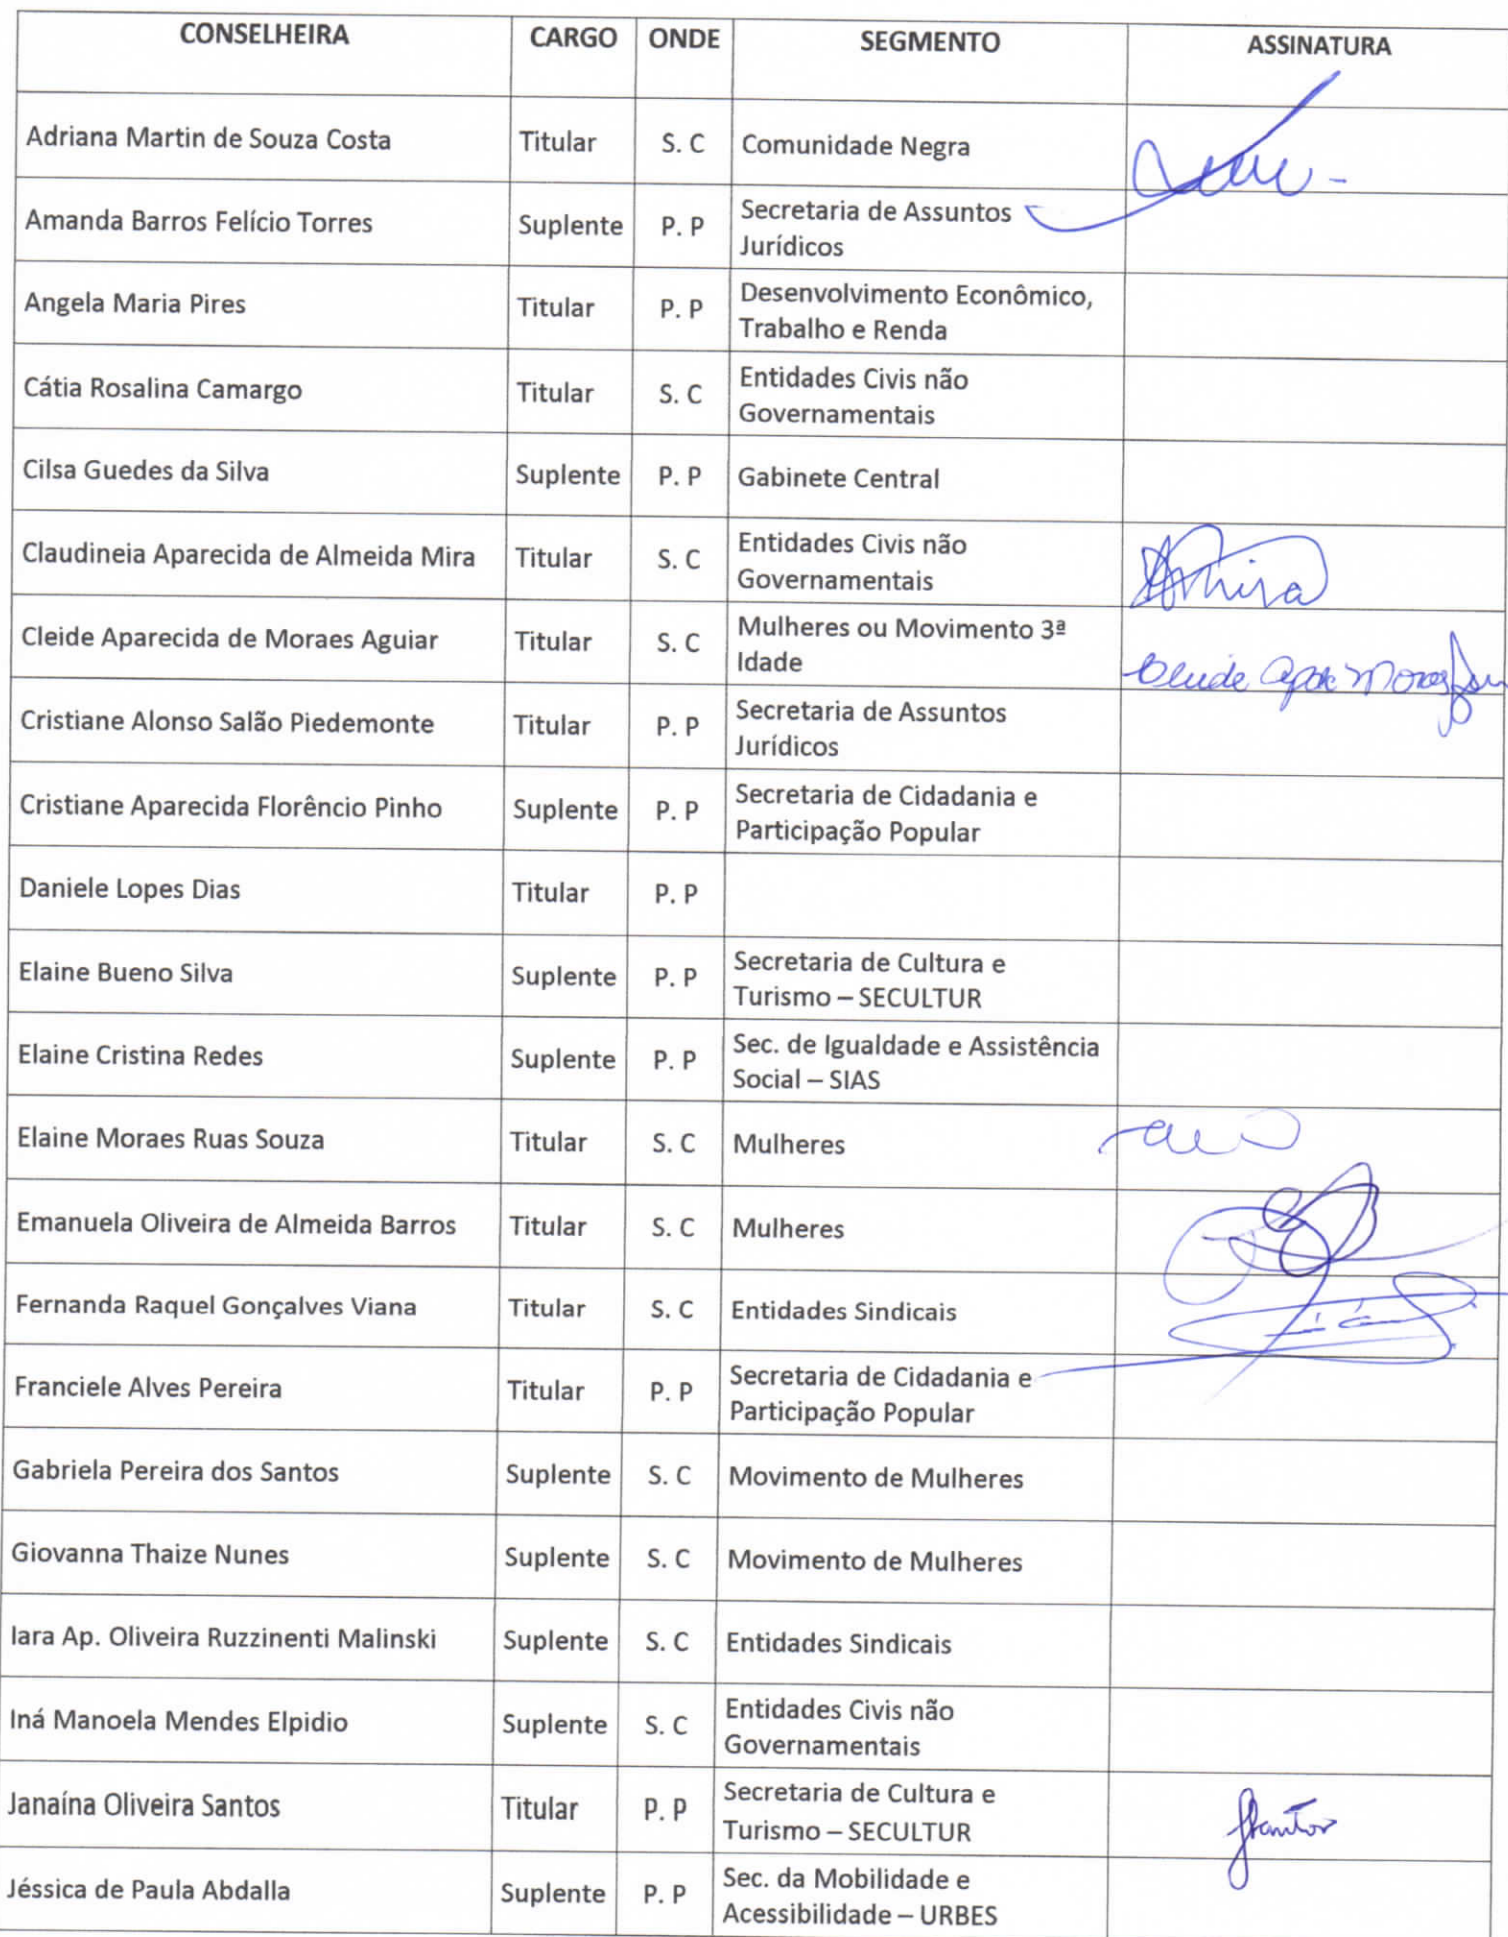 CONSELHEIRA CARGO ONDE SEGMENTO ASSINATURA
Adriana Martin de Souza Costa Titular S. C Comunidade Negra
Amanda Barros Felício Torres Suplente P. P Secretaria de Assuntos
Jurídicos
Angela Maria Pires Titular P. P Desenvolvimento Econômico,
Trabalho e Renda
Cátia Rosalina Camargo Titular S. C Entidades Civis não
Governamentais
Cilsa Guedes da Silva Suplente P. P Gabinete Central
Claudineia Aparecida de Almeida Mira Titular S. C Entidades Civis não
Governamentais
Cleide Aparecida de Moraes Aguiar Titular S. C Mulheres ou Movimento 3ª
Idade
Cristiane Alonso Salão Piedemonte Titular P. P Secretaria de Assuntos
Jurídicos
Cristiane Aparecida Florêncio Pinho Suplente P. P Secretaria de Cidadania e
Participação Popular
Daniele Lopes Dias Titular P. P
Elaine Bueno Silva Suplente P. P Secretaria de Cultura e
Turismo – SECULTUR
Elaine Cristina Redes Suplente P. P Sec. de Igualdade e Assistência
Social – SIAS
Elaine Moraes Ruas Souza Titular S. C Mulheres
Emanuela Oliveira de Almeida Barros Titular S. C Mulheres
Fernanda Raquel Gonçalves Viana Titular S. C Entidades Sindicais
Franciele Alves Pereira Titular P. P Secretaria de Cidadania e
Participação Popular
Gabriela Pereira dos Santos Suplente S. C Movimento de Mulheres
Giovanna Thaize Nunes Suplente S. C Movimento de Mulheres
Iara Ap. Oliveira Ruzzinenti Malinski Suplente S. C Entidades Sindicais
Iná Manoela Mendes Elpidio Suplente S. C Entidades Civis não
Governamentais
Janaína Oliveira Santos Titular P. P Secretaria de Cultura e
Turismo – SECULTUR
Jéssica de Paula Abdalla Suplente P. P Sec. da Mobilidade e
Acessibilidade – URBES